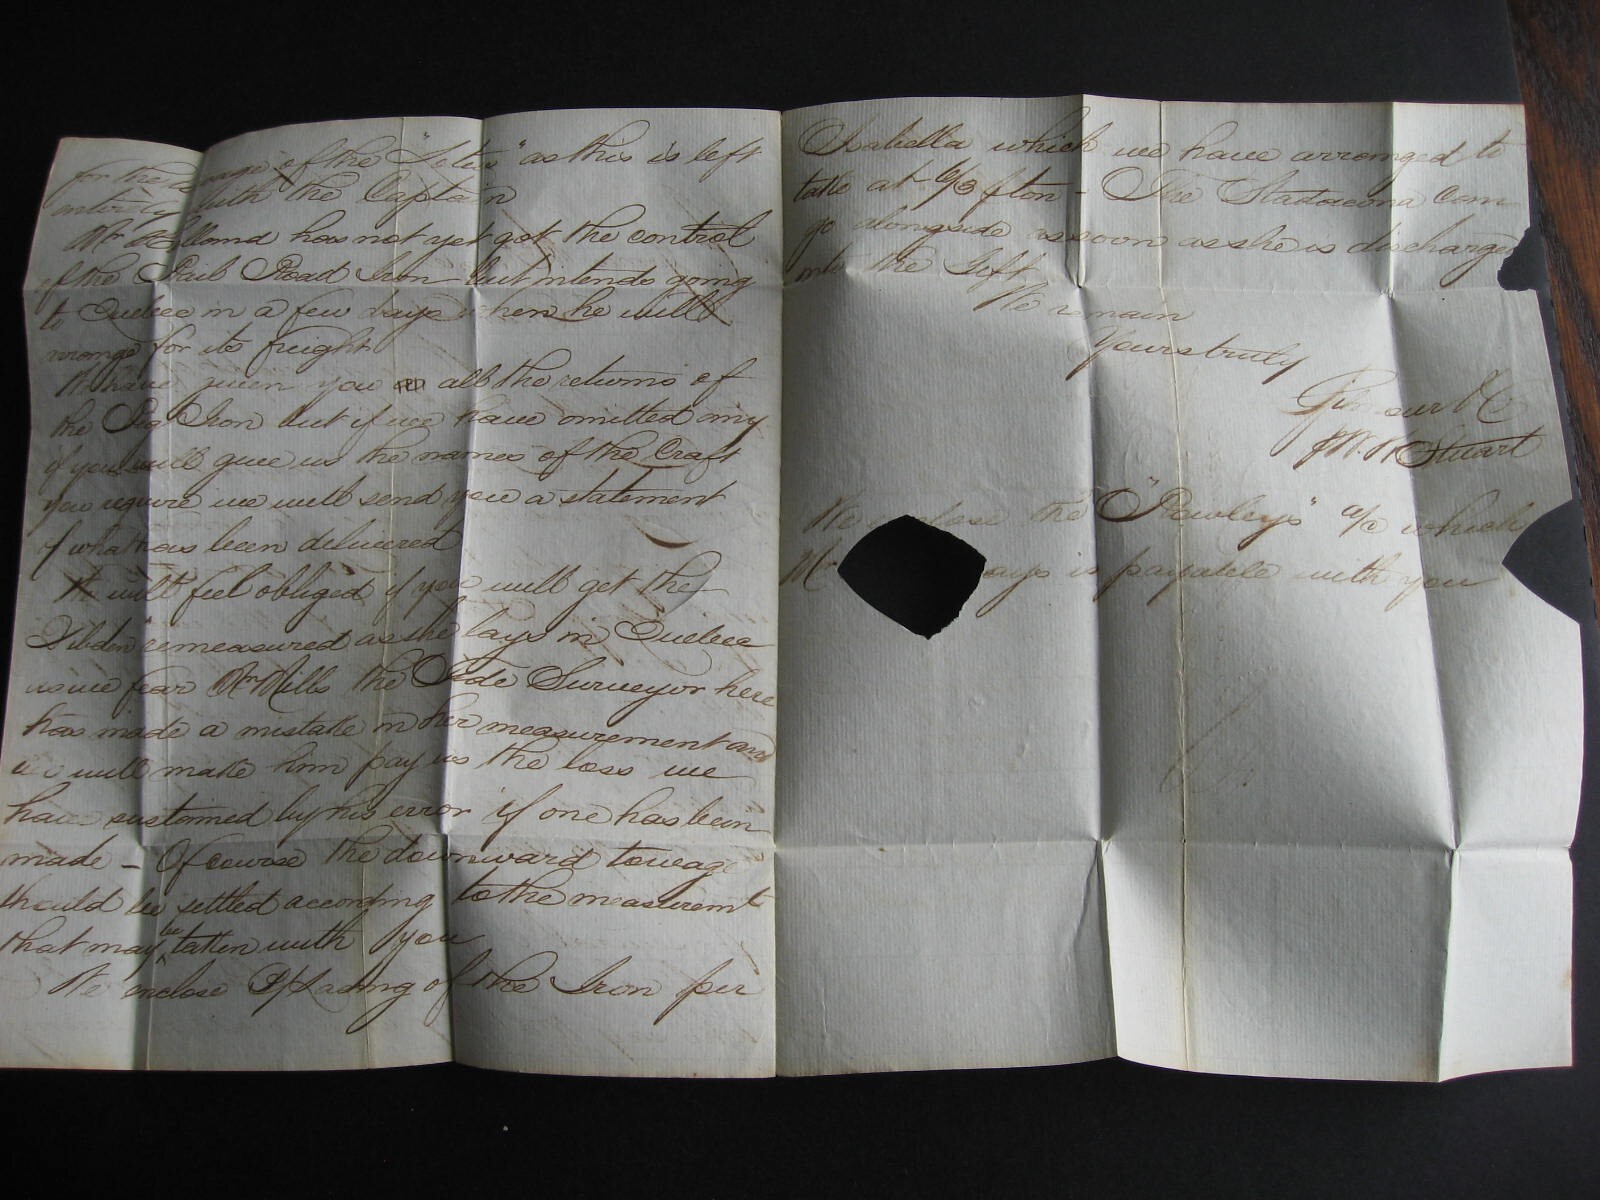 for the towage of the "Lotus" as this is left
entirely with the Captain
Mr Holland has not yet got the control
of the Rail Road Iron but intends going
to Quebec in a few days when he will
arrange for its freight
We have given you all the returns of
the Pig Iron but if we have omitted any
if you will give us the names of the Craft
you require we will send you a statement
of what has been delivered
We will feel obliged if you will get the
"Dibden" remeasured as she lays in Quebec
as we fear Mr Mills the Side Surveyor here
has made a mistake in her measurement and
we will make him pay us the loss we
have sustained by his error if one has been
made - Of course the downward towage
should be settled according to the measuremt
that may be taken with you
We enclose B/Lading of the Iron per
Isabella which we have arranged to
take at 6/3 p ton - The Stadacona can
go alongside as soon as she is discharged
into the Loft
We remain
Yours truly
Gilmour & Co
p W. Stuart
We enclose the "Rowleys" a/c which
Mr says is payable with you